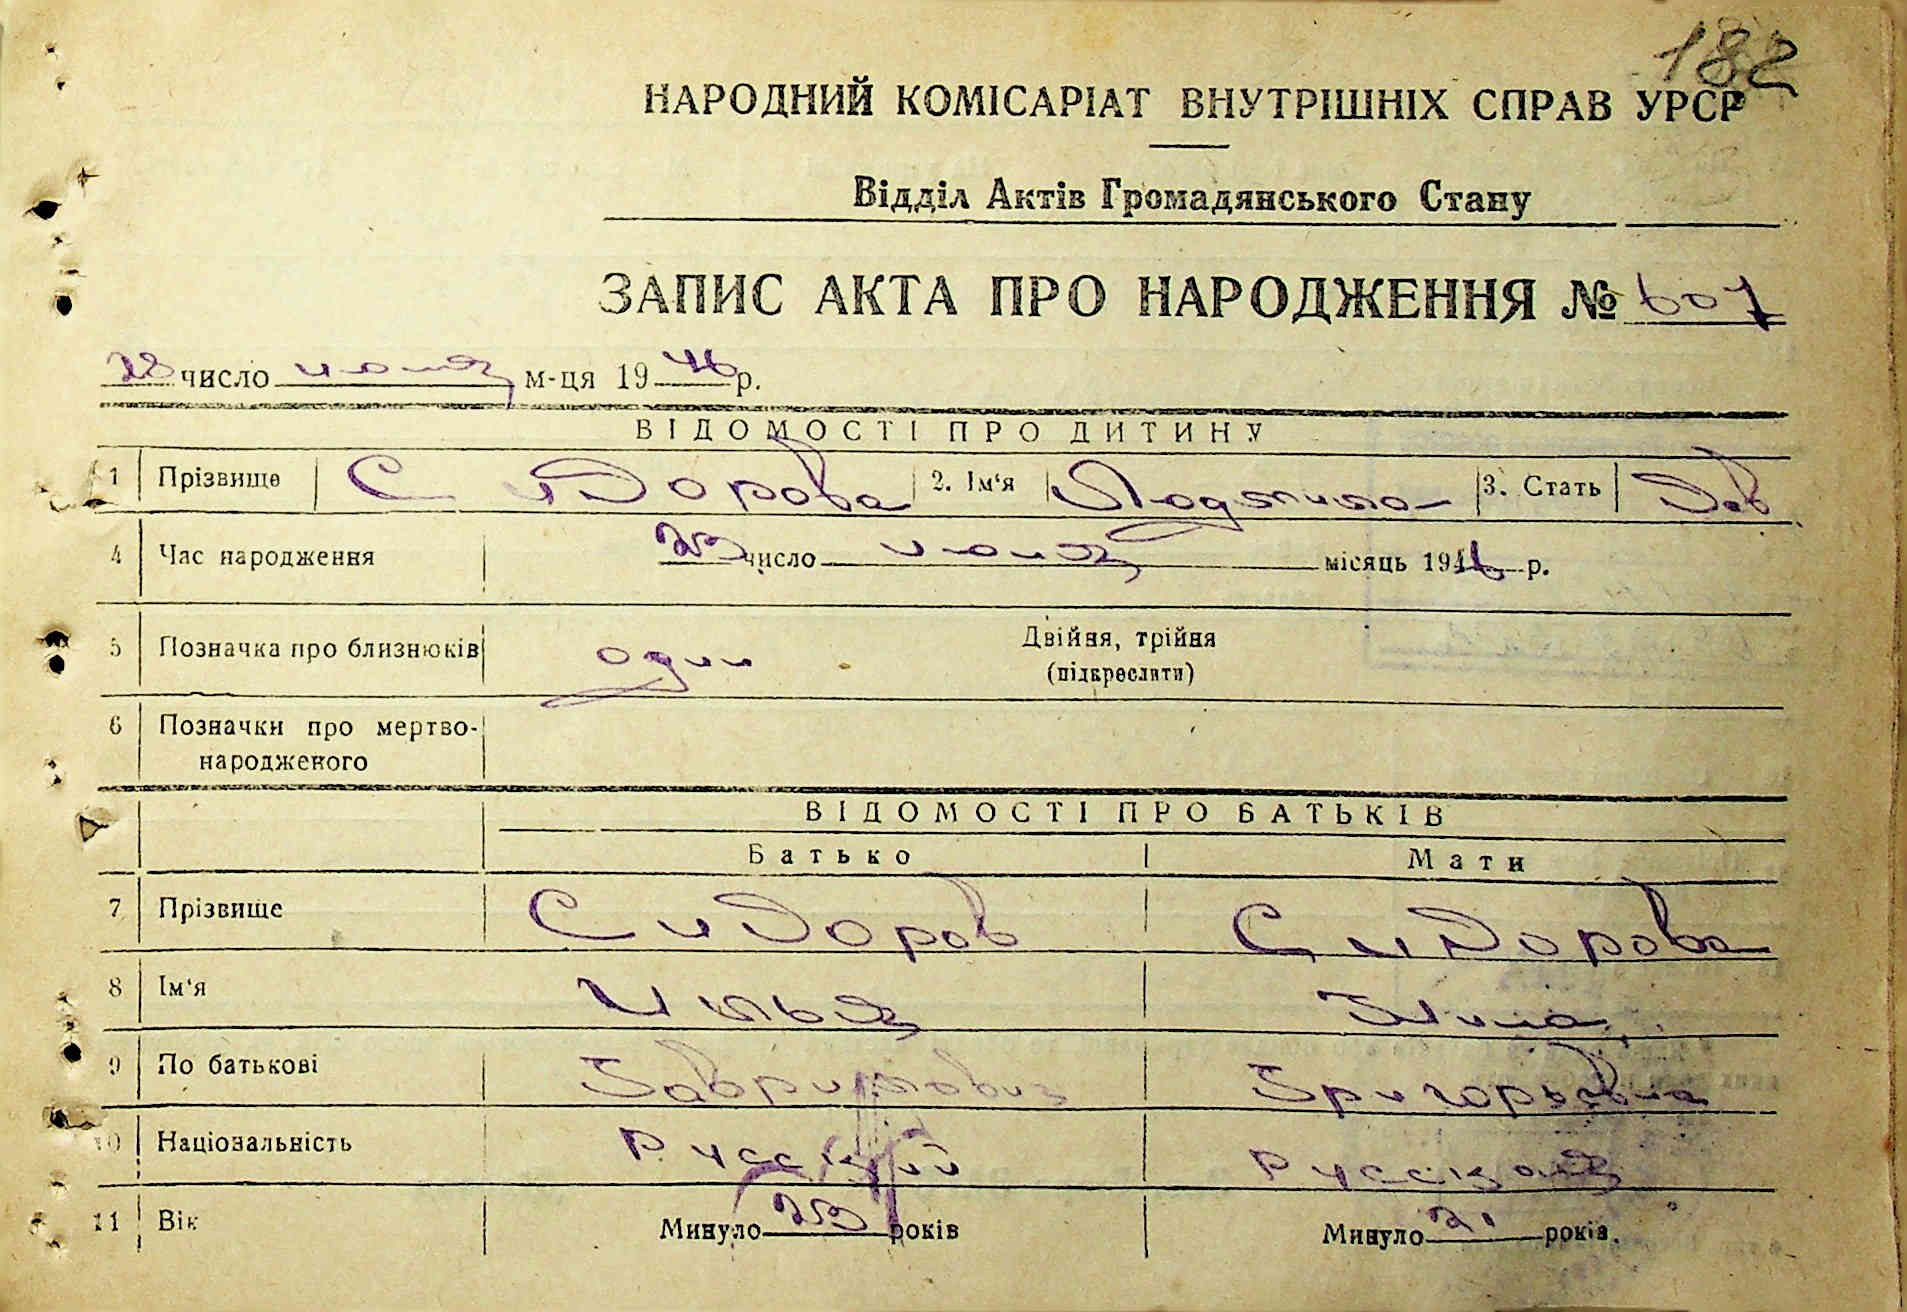 182
НАРОДНИЙ КОМІСАРІАТ ВНУТРІШНІХ СПРАВ УРСР
Відділ Актів Громадянського Стану
ЗАПИС АКТА ПРО НАРОДЖЕННЯ № 607
28 число июля м-ця 1946 р.
ВІДОМОСТІ ПРО ДИТИНУ
1 Прізвище Сидорова 2. Ім'я Людмила 3. Стать Дев
4 Час народження 23 число июля місяць 1946 р.
5 Позначка про близнюків один Двійня, трійня
(підкреслити)
6 Позначки про мертво-
народженого
ВІДОМОСТІ ПРО БАТЬКІВ
Батько Мати
7 Прізвище Сидоров Сидорова
8 Ім'я Илья Нина
9 По батькові Гаврилович Григорьевна
10 Національність Русский Русская
11 Вік Минуло 23 років Минуло 21 років.